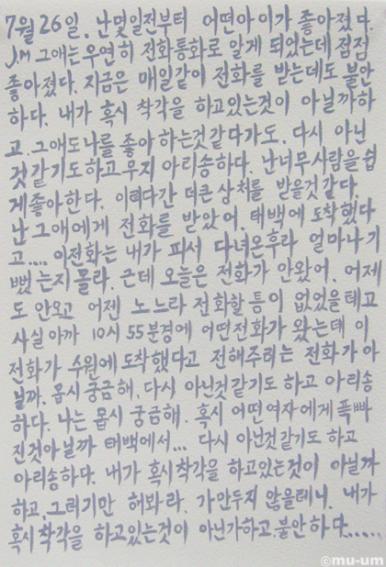 7월 26일. 난 몇일전부터 어떤아이가 좋아졌다.
J.M 그애는우연히 전화통화로 알게 되었는데 점점
좋아졌다. 지금은 매일같이 전화를 받는데도 불안
하다. 내가 혹시 착각을 하고있는것이 아닐까하
고. 그애도나를 좋아하는것같다가도. 다시 아닌
것같기도하고 무지 아리송하다. 난너무사람을 쉽
게좋아한다. 이러다간 더큰 상처를 받을것 같다
난그애에게 전화를 받았어. 태백에도착했다
고.... 이전화는 내가 피서 다녀온후라 얼마나기
뻤는지 몰라. 근데 오늘은 전화가 안왔어. 어제
도 안오고 어젠 노느라 전화할틈이 없었을테고
사실아까 10시 55분경에 어떤전화가 왔는데 이
전화가 수원에도착했다고 전해주려는 전화가아
닐까. 몹시 궁금해. 다시 아닌것같기도 하고 아리송
하다. 나는 몹시 궁금해. 혹시 어떤여자에게 푹빠
진것아닐까 태백에서... 다시 아닌것같기도 하고
아리송하다. 내가 혹시착각을 하고있는것이 아닐까
하고, 그러기만 해봐라. 가만두지 않을테니. 내가
혹시착각을 하고있는것이 아닌가하고.불안하다.....
©mu-um